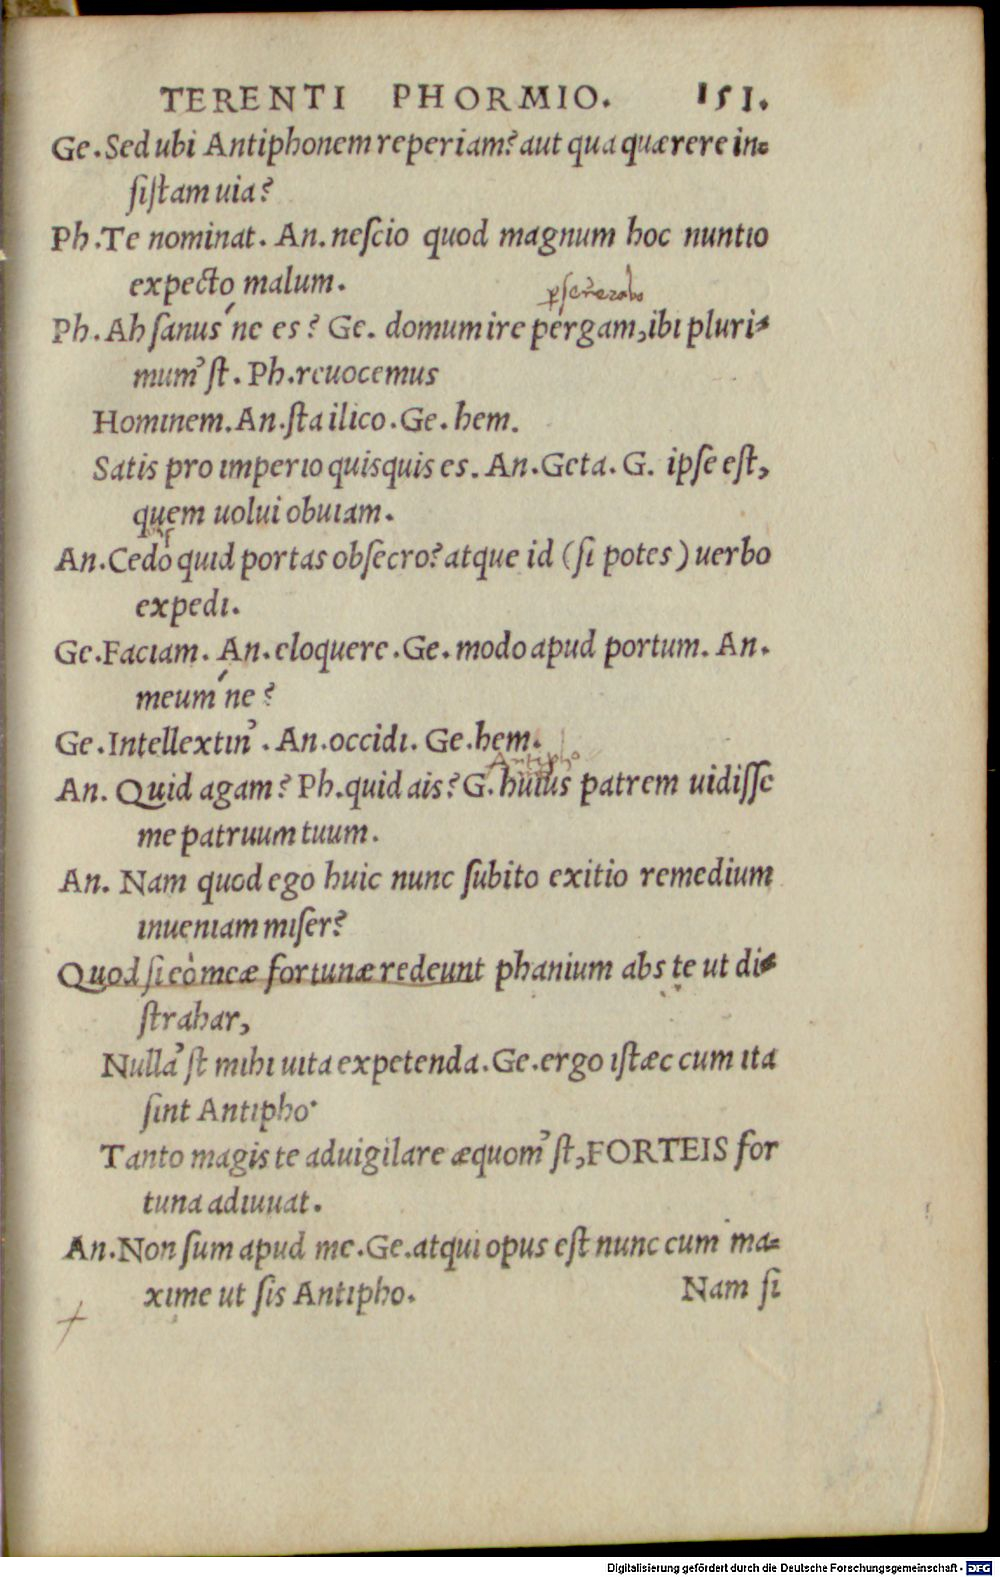 TERENTI PHORMIO. 151.
Ge. Sed ubi Antiphonem reperiam? aut qua quærere in-
ſiſtam uia?
Ph. Te nominat. An. neſcio quod magnum hoc nuntio
expecto malum.
perſeuerabo
Ph. Ah ſanus'ne es? Ge. domum ire pergam, ibi pluri-
mum'ſt. Ph. reuocemus
Hominem. An. ſta ilico. Ge. hem.
Satis pro imperio quisquis es. An. Geta. G. ipſe eſt,
quem uolui obuiam.
An. Cedo quid portas obſecro? atque id (ſi potes) uerbo
expedi.
Ge. Faciam. An. eloquere. Ge. modo apud portum. An.
meum'ne?
Ge. Intellextin'. An. occidi. Ge. hem.
Antipho
An. Quid agam? Ph. quid ais? G. huius patrem uidiſſe
me patruum tuum.
An. Nam quod ego huic nunc ſubito exitio remedium
inueniam miſer?
Quod ſi eò meæ fortunæ redeunt phanium abs te ut di-
ſtrahar,
Nulla'ſt mihi uita expetenda. Ge. ergo iſtæc cum ita
ſint Antipho·
Tanto magis te aduigilare æquom'ſt, FORTEIS for
tuna adiuuat.
An. Non ſum apud me. Ge. atqui opus eſt nunc cum ma-
xime ut ſis Antipho. Nam ſi
Digitalisierung gefördert durch die Deutsche Forschungsgemeinschaft - DFG